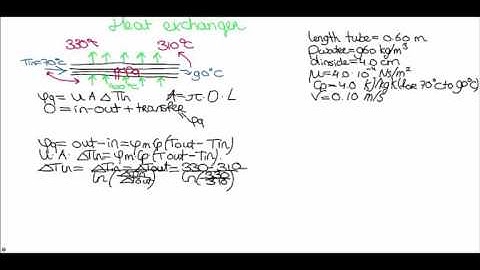 Heat exchanger
330°C 310°C
Tin=70°C 90°C
φq
400°C
φq = U A ΔTln A=π·D·L
0 = in-out + transfer
φq
φq = out-in = φm Cp (Tout - Tin)
U·A·ΔTln = φm Cp (Tout - Tin)
ΔTln = ΔTin - ΔTout / ln(ΔTin/ΔTout) = 330-310 / ln(330/310)
length tube = 0.60 m
ρwater = 960 kg/m³
dinside = 4.0 cm
μ = 4.0·10⁻⁴ Ns/m²
Cp = 4.0 kJ/kgK (for 70°C to 90°C)
V = 0.10 m/s